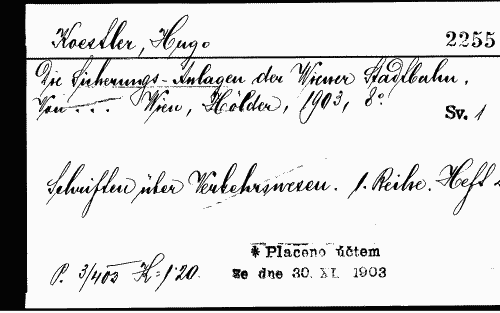 Koestler, Hugo
2255
Die Sicherungs-Anlagen der Wiener Stadtbahn.
Von ... Wien, Hölder, 1903, 8º.
Sv. 1
Schriften über Verkehrswesen. 1. Reihe. Heft
* Placeno účtem
P. 3/403 K=1·20.
ze dne 30. XI. 1903